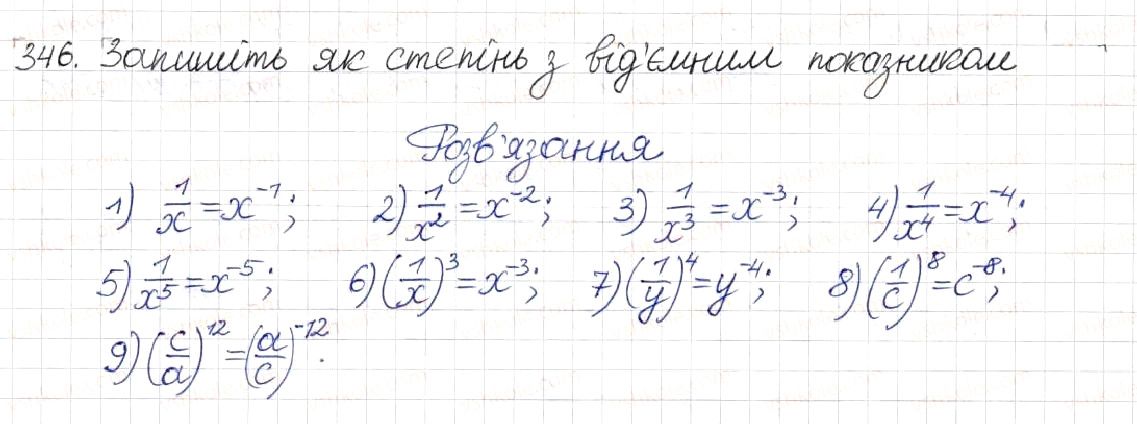 346. Запишіть як степінь з від'ємним показником
Розв'язання
1) 1/x = x⁻¹; 2) 1/x² = x⁻²; 3) 1/x³ = x⁻³; 4) 1/x⁴ = x⁻⁴;
5) 1/x⁵ = x⁻⁵; 6) (1/x)³ = x⁻³; 7) (1/y)⁴ = y⁻⁴; 8) (1/c)⁸ = c⁻⁸;
9) (c/a)¹² = (a/c)⁻¹².